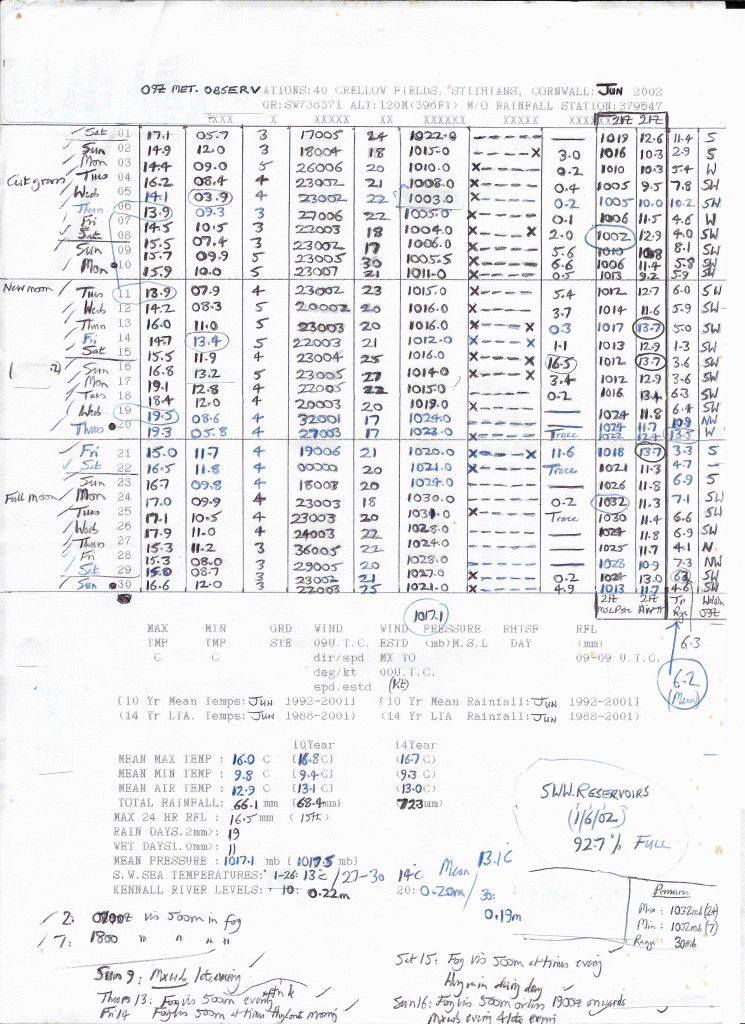 09Z MET. OBSERVATIONS:40 CRELLOW FIELDS, STITHIANS, CORNWALL: JUN 2002
GR:SW738371 ALT:120M(396FT) M/O RAINFALL STATION:379547
XXX X XXXXX XX XXXXX XXXXX XXXXX 21Z 21Z
Sat 01 17.1 05.7 3 17005 24 1022.0 ----- — 1019 12.6 11.4 S
Sun 02 14.9 12.0 3 18004 18 1015.0 -----x 3.0 1016 10.3 2.9 S
Mon 03 14.4 09.0 5 26006 20 1010.0 x---- 0.2 1010 10.3 5.4 W
Cut grass Tues 04 16.2 08.4 4 23002 21 1008.0 x---- 0.4 1005 9.5 7.8 SW
Wed 05 14.1 03.9 4 23002 22 1003.0 x---- 0.2 1005 10.0 10.2 SW
Thurs 06 13.9 09.3 3 27006 22 1005.0 x---- 0.1 1006 11.5 4.6 W
Fri 07 14.5 10.5 5 22003 18 1004.0 x----x 2.0 1002 12.9 4.0 SW
Sat 08 15.5 07.4 3 23002 17 1006.0 x---- 5.6 1010 10.8 8.1 SW
Sun 09 15.7 09.9 5 23005 30 1005.5 x---- 6.6 1006 11.4 5.8 SW
Mon 10 15.9 10.0 5 23007 21 1011.0 x---- 0.5 1013 9.2 5.9 SW
New moon Tues 11 13.9 07.9 4 23002 23 1015.0 x---- 5.4 1012 12.7 6.0 SW
Wed 12 14.2 08.3 5 20002 20 1016.0 x---- 3.7 1014 11.6 5.9 SW
Thurs 13 16.0 11.0 5 23003 20 1016.0 x----x 0.3 1017 13.7 5.0 SW
Fri 14 14.7 13.4 5 22003 21 1012.0 x----x 1.1 1013 12.9 1.3 SW
Sat 15 15.5 11.9 4 23004 25 1016.0 x----x 16.5 1012 13.7 3.6 SW
Sun 16 16.8 13.2 5 23005 27 1014.0 x----x 3.4 1012 12.9 3.6 SW
Mon 17 19.1 12.8 4 22005 22 1015.0 x---- 0.2 1016 13.4 6.3 SW
Tues 18 18.4 12.0 4 20003 20 1019.0 ----- — 1024 11.8 6.4 SW
Wed 19 19.5 08.6 4 32001 17 1024.0 ----- — 1024 11.7 10.9 NW
Thurs 20 19.3 05.8 4 27003 17 1023.0 x---- Trace 1022 12.4 13.5 W
Fri 21 15.0 11.7 4 19006 21 1020.0 x----x 11.6 1018 13.7 3.3 S
Sat 22 16.5 11.8 4 00000 20 1021.0 x---- Trace 1021 11.3 4.7 —
Sun 23 16.7 09.8 4 18003 20 1024.0 ----- — 1026 11.8 6.9 S
Full moon Mon 24 17.0 09.9 4 23003 18 1030.0 ----- 0.2 1032 11.3 7.1 SW
Tues 25 17.1 10.5 4 23003 20 1031.0 x---- Trace 1030 11.4 6.6 SW
Wed 26 17.9 11.0 4 24003 22 1028.0 ----- — 1024 11.8 6.9 SW
Thurs 27 15.3 11.2 3 36005 22 1024.0 ----- — 1025 11.7 4.1 N
Fri 28 15.3 08.0 3 29005 20 1028.0 ----- — 1028 10.9 7.3 NW
Sat 29 15.0 08.7 3 23002 21 1027.0 x---- 0.2 1024 13.0 6.3 SW
Sun 30 16.6 12.0 3 22005 25 1021.0 x---- 4.9 1013 11.7 4.6 SW
21Z 21Z
1017.1
MAX MIN GRD WIND WIND PRESSURE RHTSF RFL
TMP TMP STE 09U.T.C. ESTD (mb)M.S.L DAY (mm)
C C dir/spd MX TO 09-09 U.T.C.
deg/kt 00U.T.C.
spd.estd (Kt)
6.3
6.2 (Mean)
[10 Yr Mean Temps: JUN 1992-2001] [10 Yr Mean Rainfall: JUN 1992-2001]
(14 Yr LTA. Temps: JUN 1988-2001) (14 Yr LTA Rainfall: JUN 1988-2001)
10Year 14Year
MEAN MAX TEMP : 16.0 C [16.8C] (16.7C)
MEAN MIN TEMP : 9.8 C [9.4C] (9.3C)
MEAN AIR TEMP : 12.9 C [13.1C] (13.0C)
TOTAL RAINFALL: 66.1 mm [68.4mm] 72.3mm)
MAX 24 HR RFL : 16.5 mm (15th)
RAIN DAYS.2mm>: 19
WET DAYS1.0mm>: 11
MEAN PRESSURE : 1017.1 mb [1017.5 mb]
S.W.SEA TEMPERATURES: 1-26: 13°C / 27-30 14°C Mean 13.1°C
KENNALL RIVER LEVELS: 10: 0.22m 20: 0.20m / 30: 0.19m
SWW. RESERVOIRS
(1/6/02)
92.7% FULL
Pressure
Max: 1032mb (24)
Min: 1002mb (7)
Range: 30mb
/ 2: 0700Z vis 500m in fog
/ 7: 1800 " " " "
Sun 9: Mxwb late evening
Thurs 13: Fog vis 500m evening
Fri 14 Fog vis 500m at times morning
Sat 15: Fog vis 500m at times evening
Hvy rain during day
Sun 16: Fog vis 500m or less 1900Z onwards